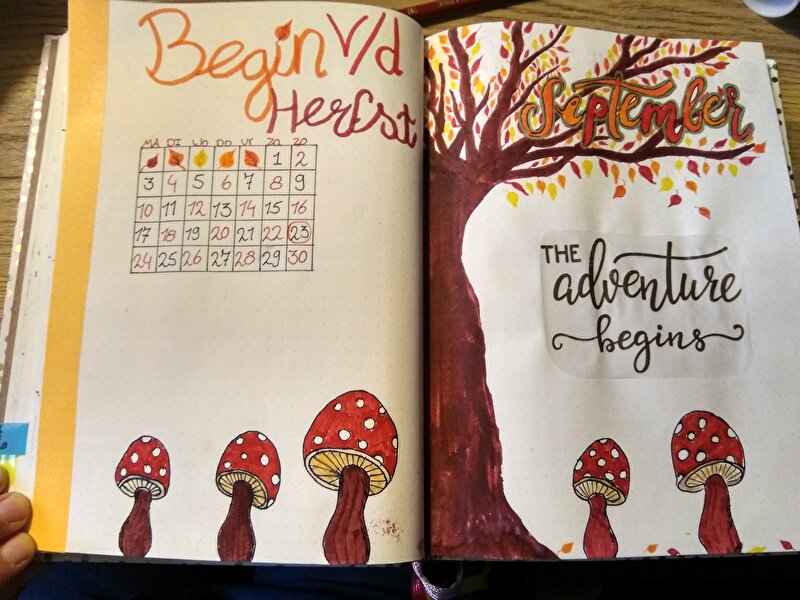 Begin v/d
Herfst
MA DI WO DO VR ZA ZO
1 2
3 4 5 6 7 8 9
10 11 12 13 14 15 16
17 18 19 20 21 22 23
24 25 26 27 28 29 30
September
THE
adventure
begins